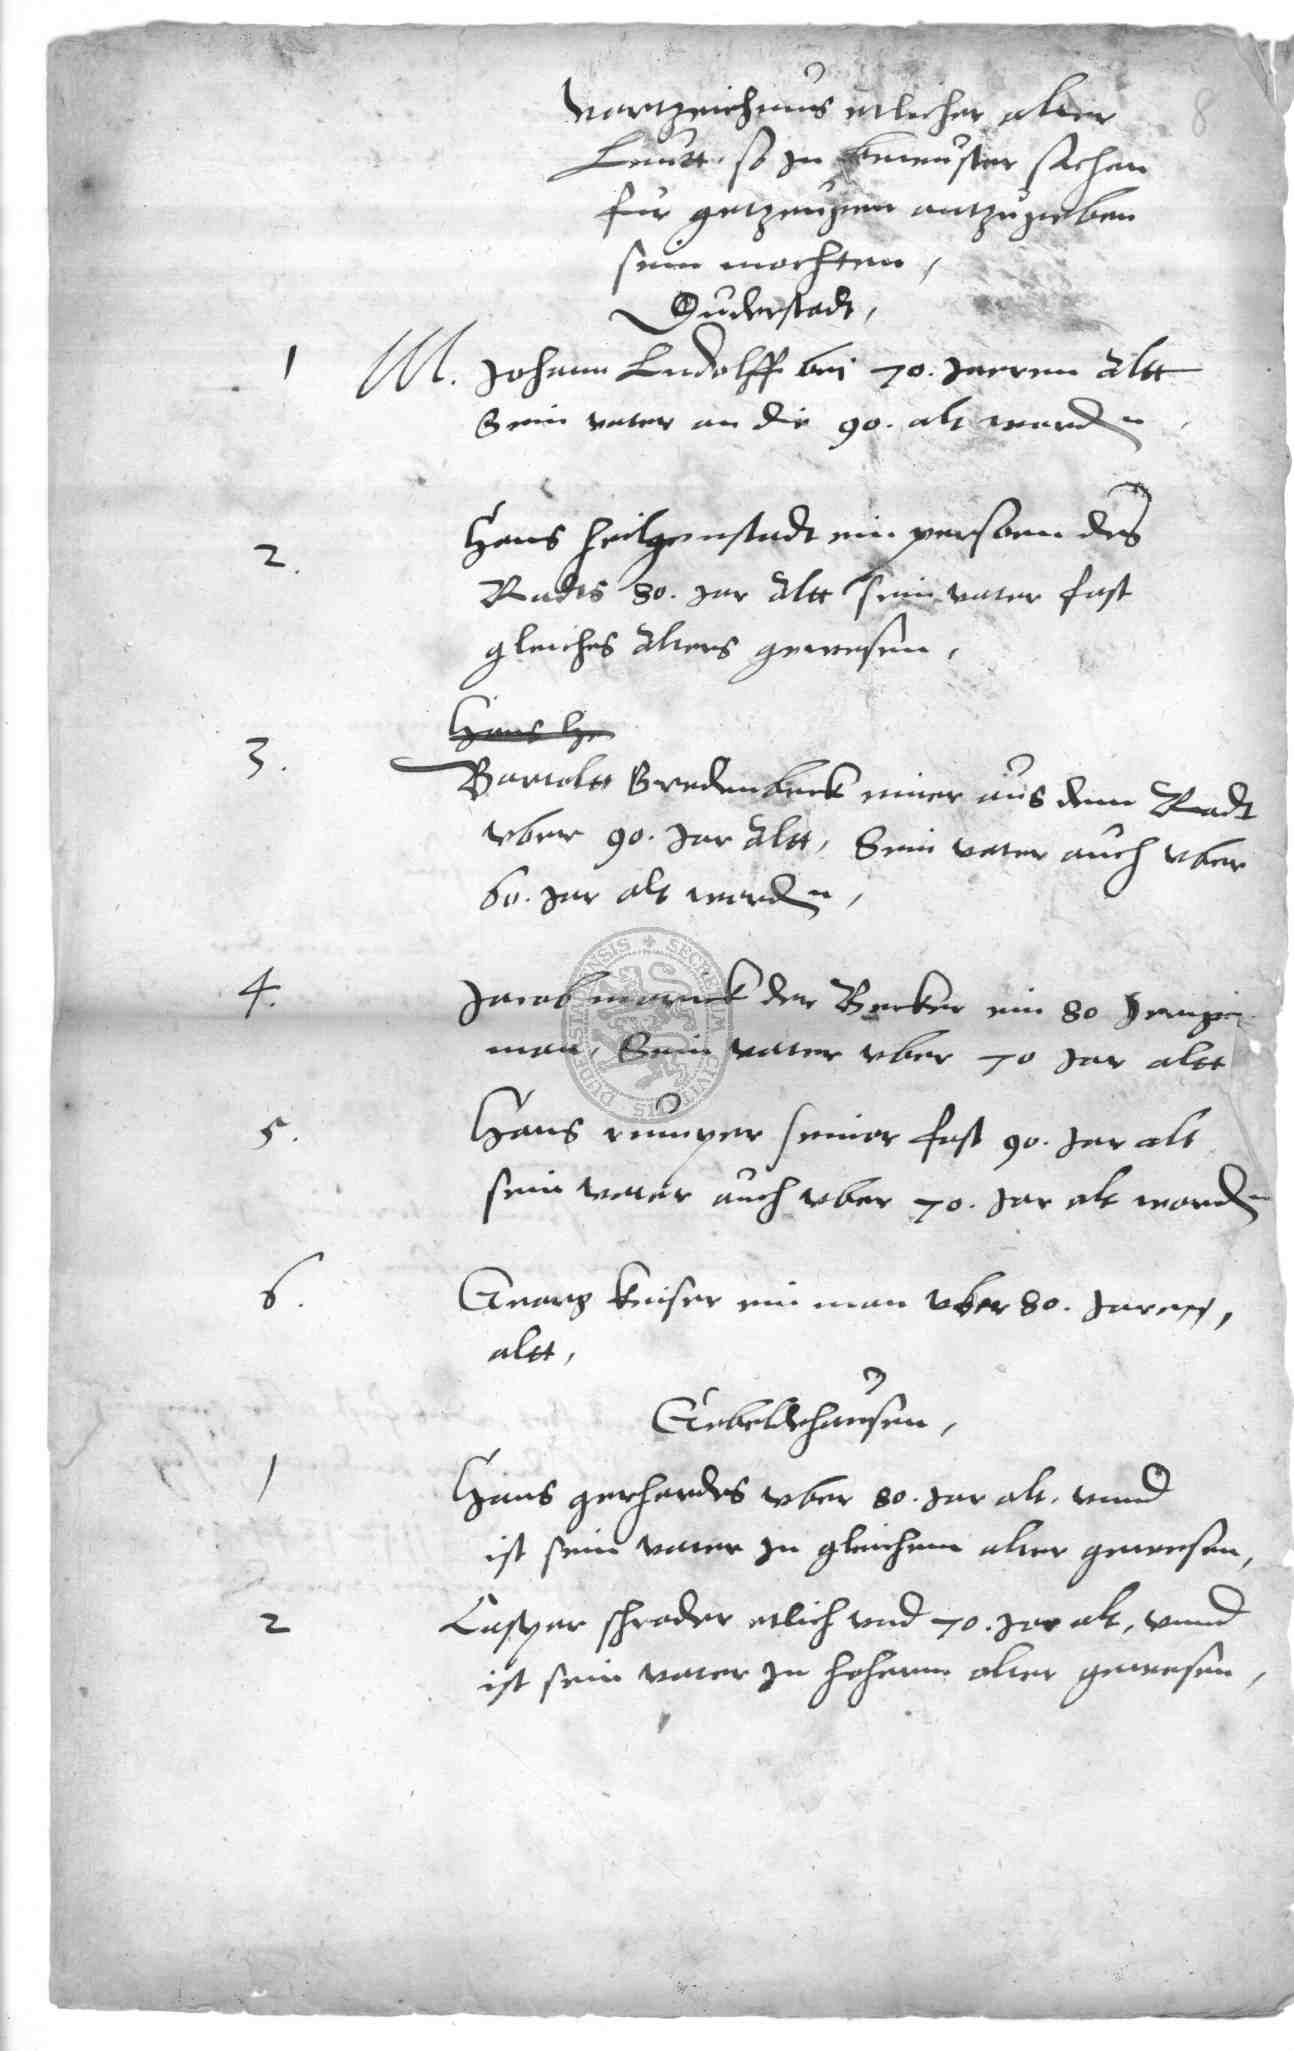 8
Vortzeichnus etlicher alter
Leutt so in bewuster sachen
für getzeugen antzugeben
sein mochten,
Duderstadt,
1 M. Johann Ludolff bei 70. Jarren altt
Sein vater an die 90. alt worden
2. Hans heilgenstadt ein person des
Radts 80. Jar altt sein vater fast
gleiches alters gewesen,
Hans He
3. Bartoltt Bredenbeck einer aus dem Radt
vber 90. Jar altt, Sein vater auch vber
60. Jar alt worden,
4. Jacob der Becker ein 80 Jerige
man, Sein vater vber 70 Jar altt
5. Hans senior fast 90. Jar alt
sein vater auch vber 70. Jar alt worden
6. Georg Keiser ein man vber 80. Jaren,
altt,
Gebelshausen,
1 Hans gerhardes vber 80. Jar alt, vnnd
ist sein vater in gleichem alter gewesen,
2 Casper schrader etlich vnd 70. Jar alt, vnnd
ist sein vater in hohem alter gewesen,
SECRETUM CIVITATIS DUDERSTADENSIS